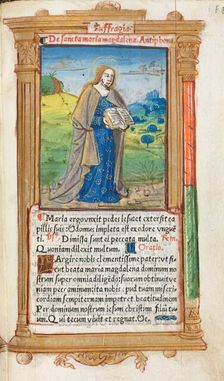 Suffragia
De sancta maria magdalena. Antiphona
Maria ergo unxit pedes iesu et extersit ca
pillis suis: Domus impleta est ex odore ungue
ti. Dimissa sunt ei peccata multa. Rem.
Quoniam dilexit multum. Oratio.
Largire nobis clementissime pater: vt si
cut beata maria magdalena dominum no
strum super omnia diligēdo: suorum obtinuit veni
am peccaminum: ita nobis: apud misericordi
am sempiternam impetret beatitudinem
Per dominum nostrum iesum christum filiu tuu
um. Qui tecum viuit et regnat. &c.